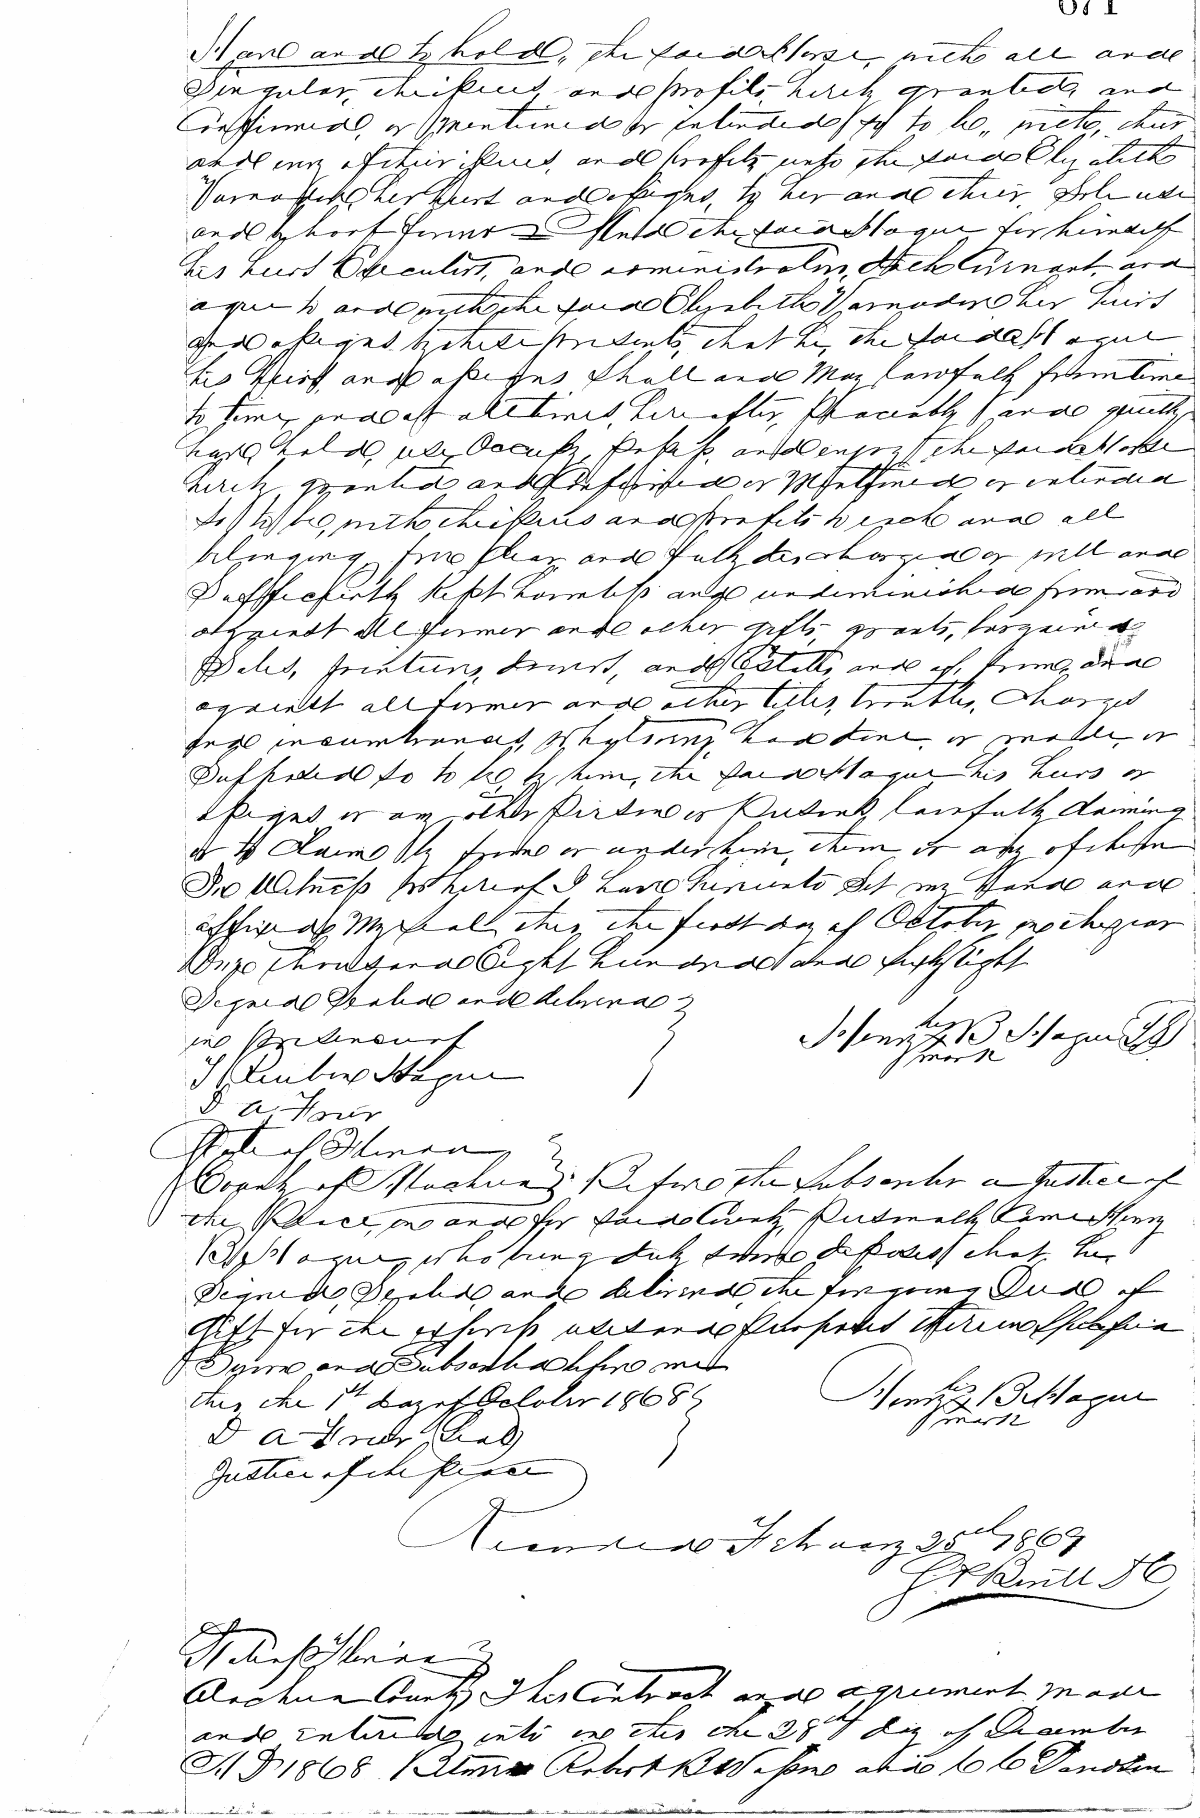 671
Have and to hold, the said Horse, with all and
Singular, their issues, and profits, hereby granted, and
Confirmed, or mentioned or intended so to be, with, their
and every of their issues, and profits unto the said Elizabeth
Varnadore her heirs and assigns, to her and their Sole use
and behoof forever And the said Hague for himself
his heirs Executors, and administrators, doth Covenant, and
agree to and with the said Elizabeth Varnadore her heirs
and assigns by these presents, that he, the said Hague
his heirs and assigns Shall and May lawfully from time
to time, and at all times, here after, Peaceably and quietly
have hold, use, Occupy, Possess, and enjoy the said Horse
hereby, granted and Confirmed or Mentioned or intended
so to be, with their issues and profits to each and all
belonging, free Clear and fully discharged or well and
Sufficiently Kept harmless and undiminished from and
against All former and other gifts, grants, bargains
Sales, jointures, dowers, and Estates and of, from, and
against all former and other titles, troubles, Charges
and incumbrances, whatsoever, had done, or made, or
Supposed so to be, by him, the said Hague his heirs or
assigns or any other Person or Persons, lawfully Claiming
or to Claim by from or under him, them or any of them
In Witness Whereof I have hereunto Set my Hand and
affixed My seal this the first day of October in the year
One thousand Eight hundred and sixty Eight
Signed Sealed and delivered
in presence of
Henry B Hague
his
mark
Reuben Hague
D A
State of Florida
County of Alachua Before the Subscriber a Justice of
the Peace, in and for said County, Personally Came Henry
B Hague, who being duly sworn deposes that, he,
Signed, Sealed, and delivered, the foregoing Deed of
Gift for the express uses and Purposes therein
Sworn and Subscribed before me
this the 1st day of October 1868
Henry B Hague
his
mark
D A (Seal)
Justice of the Peace
Recorded February 25th 1869

State of Florida
Alachua County This Contract and agreement Made
and entered into on this the 28th day of December
A D 1868 Between Robert B C C